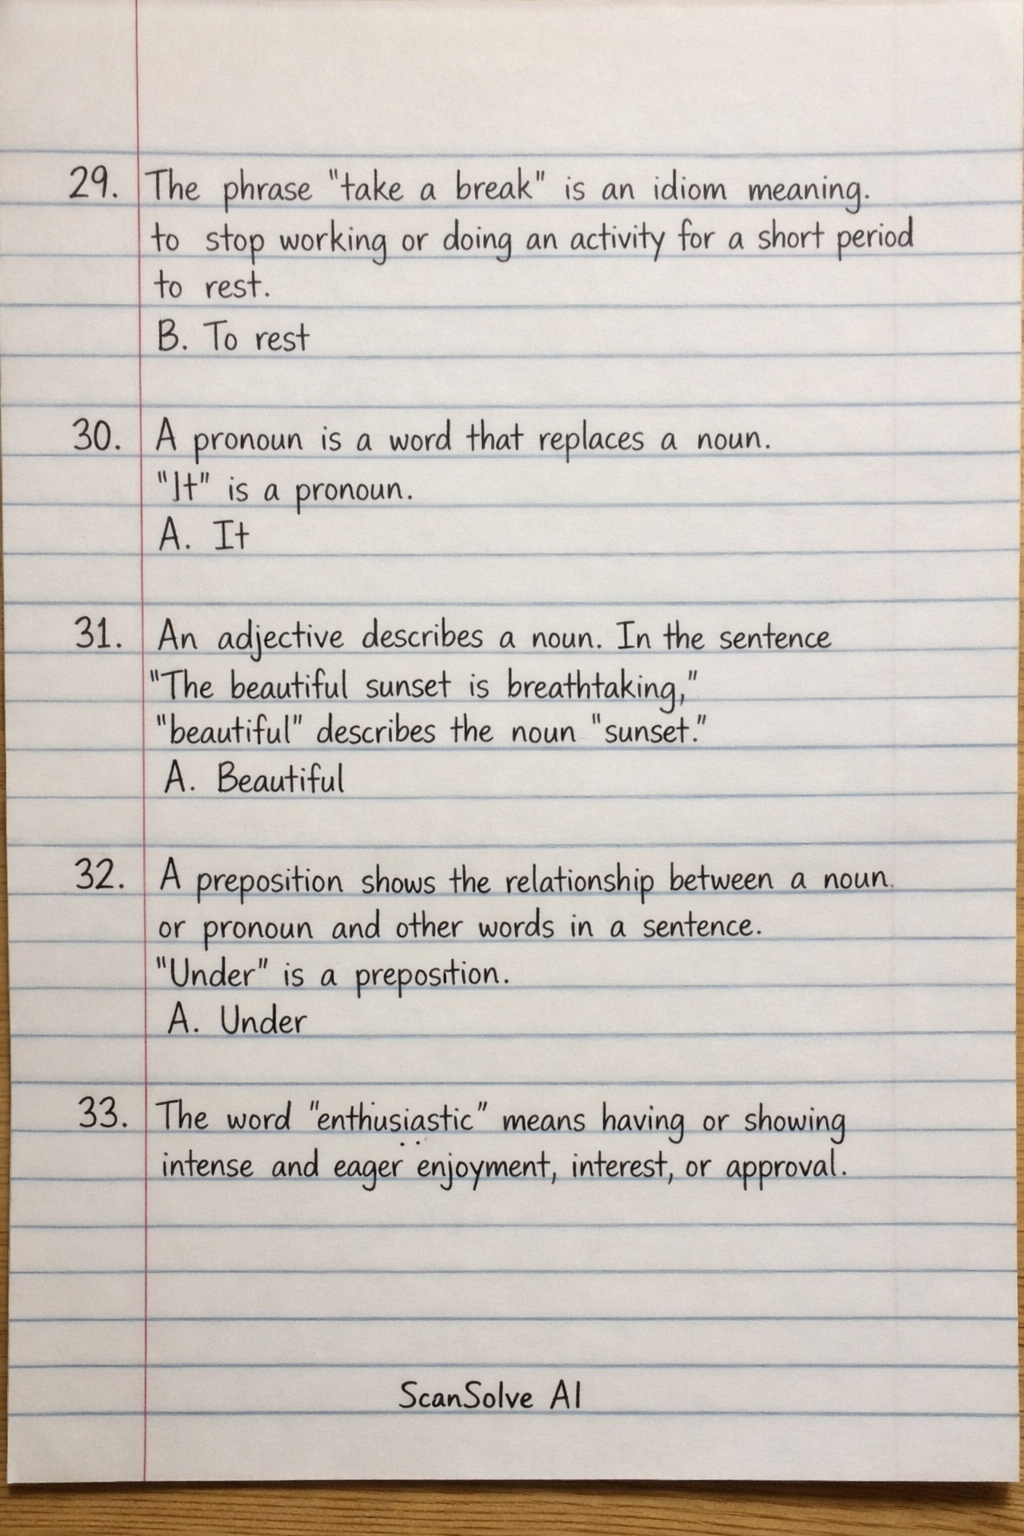 29. The phrase "take a break" is an idiom meaning.
to stop working or doing an activity for a short period
to rest.
B. To rest
30. A pronoun is a word that replaces a noun.
"It" is a pronoun.
A. It
31. An adjective describes a noun. In the sentence
"The beautiful sunset is breathtaking,"
"beautiful" describes the noun "sunset."
A. Beautiful
32. A preposition shows the relationship between a noun.
or pronoun and other words in a sentence.
"Under" is a preposition.
A. Under
33. The word "enthusiastic" means having or showing
intense and eager enjoyment, interest, or approval.
ScanSolve AI